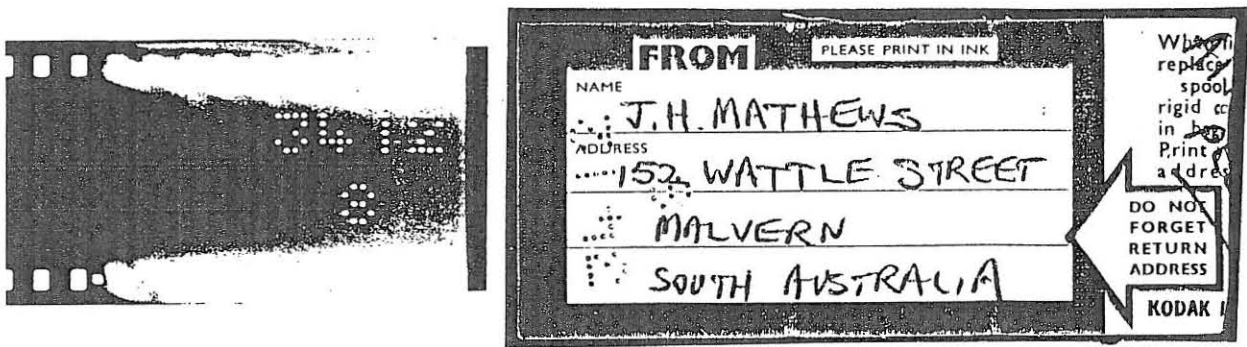 FROM
PLEASE PRINT IN INK
NAME
J.H. MATHEWS
ADDRESS
152 WATTLE STREET
MALVERN
SOUTH AUSTRALIA
spool
rigid
in
Print
DO NOT
FORGET
RETURN
ADDRESS
KODAK